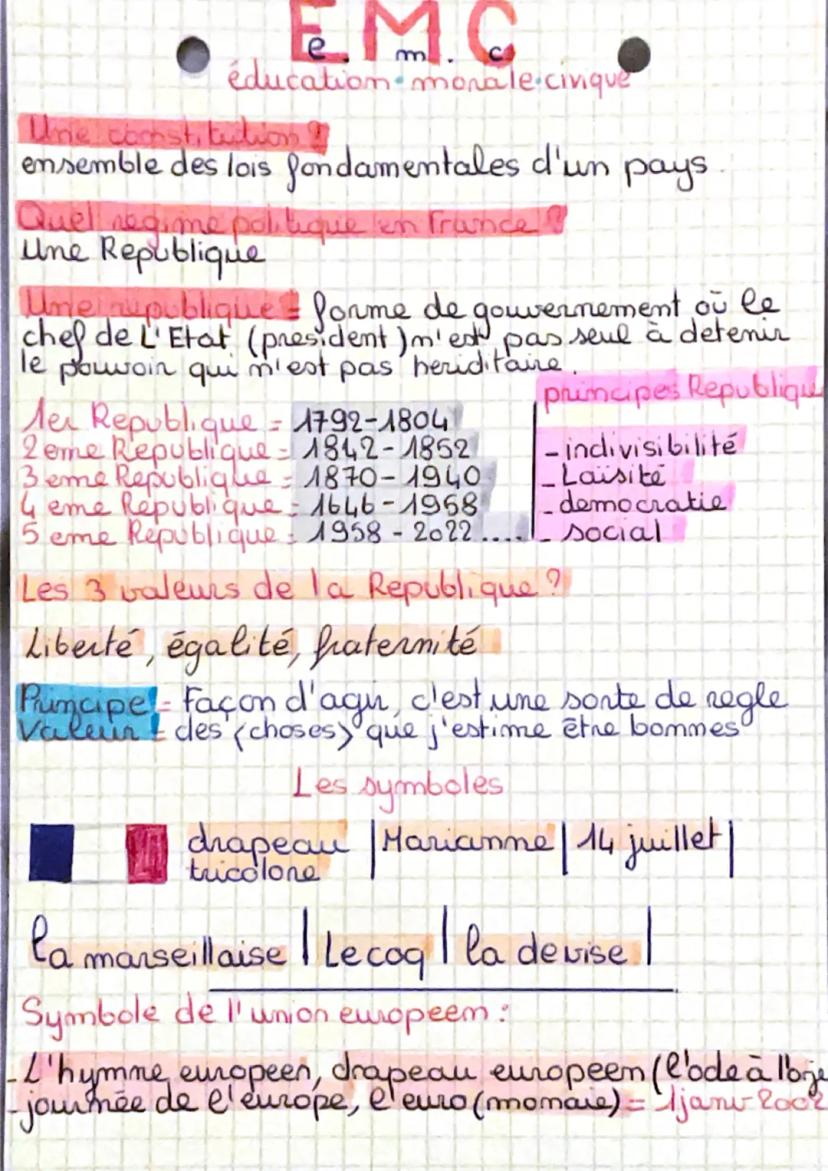 E.M.C
e. m. c
éducation morale civique
Une constitution ?
ensemble des lois fondamentales d'un pays
Quel regime politique en France ?
Une République
Une republique = forme de gouvernement où le
chef de L'Etat (president) n'est pas seul à detenir
le pouvoir qui n'est pas heriditaire.
principes Republique
1er Republique = 1792-1804
2eme Republique = 1842-1852
3eme Republique = 1870-1940
4eme Republique = 1646-1958
5eme Republique = 1958-2022....
- indivisibilité
- Laisité
- democratie
- social
Les 3 valeurs de la Republique ?
Liberté, égalité, fraternité
Principe = Façon d'agir, c'est une sorte de regle
Valeur = des (choses) que j'estime être bonnes
Les symboles
drapeau | Marianne | 14 juillet |
tricolore
la marseillaise | Le coq | la devise |
Symbole de l'union europeen :
- L'hymne europeen, drapeau europeen (l'ode à
- journée de l'europe, l'euro (monaie) = 1 janv 2002